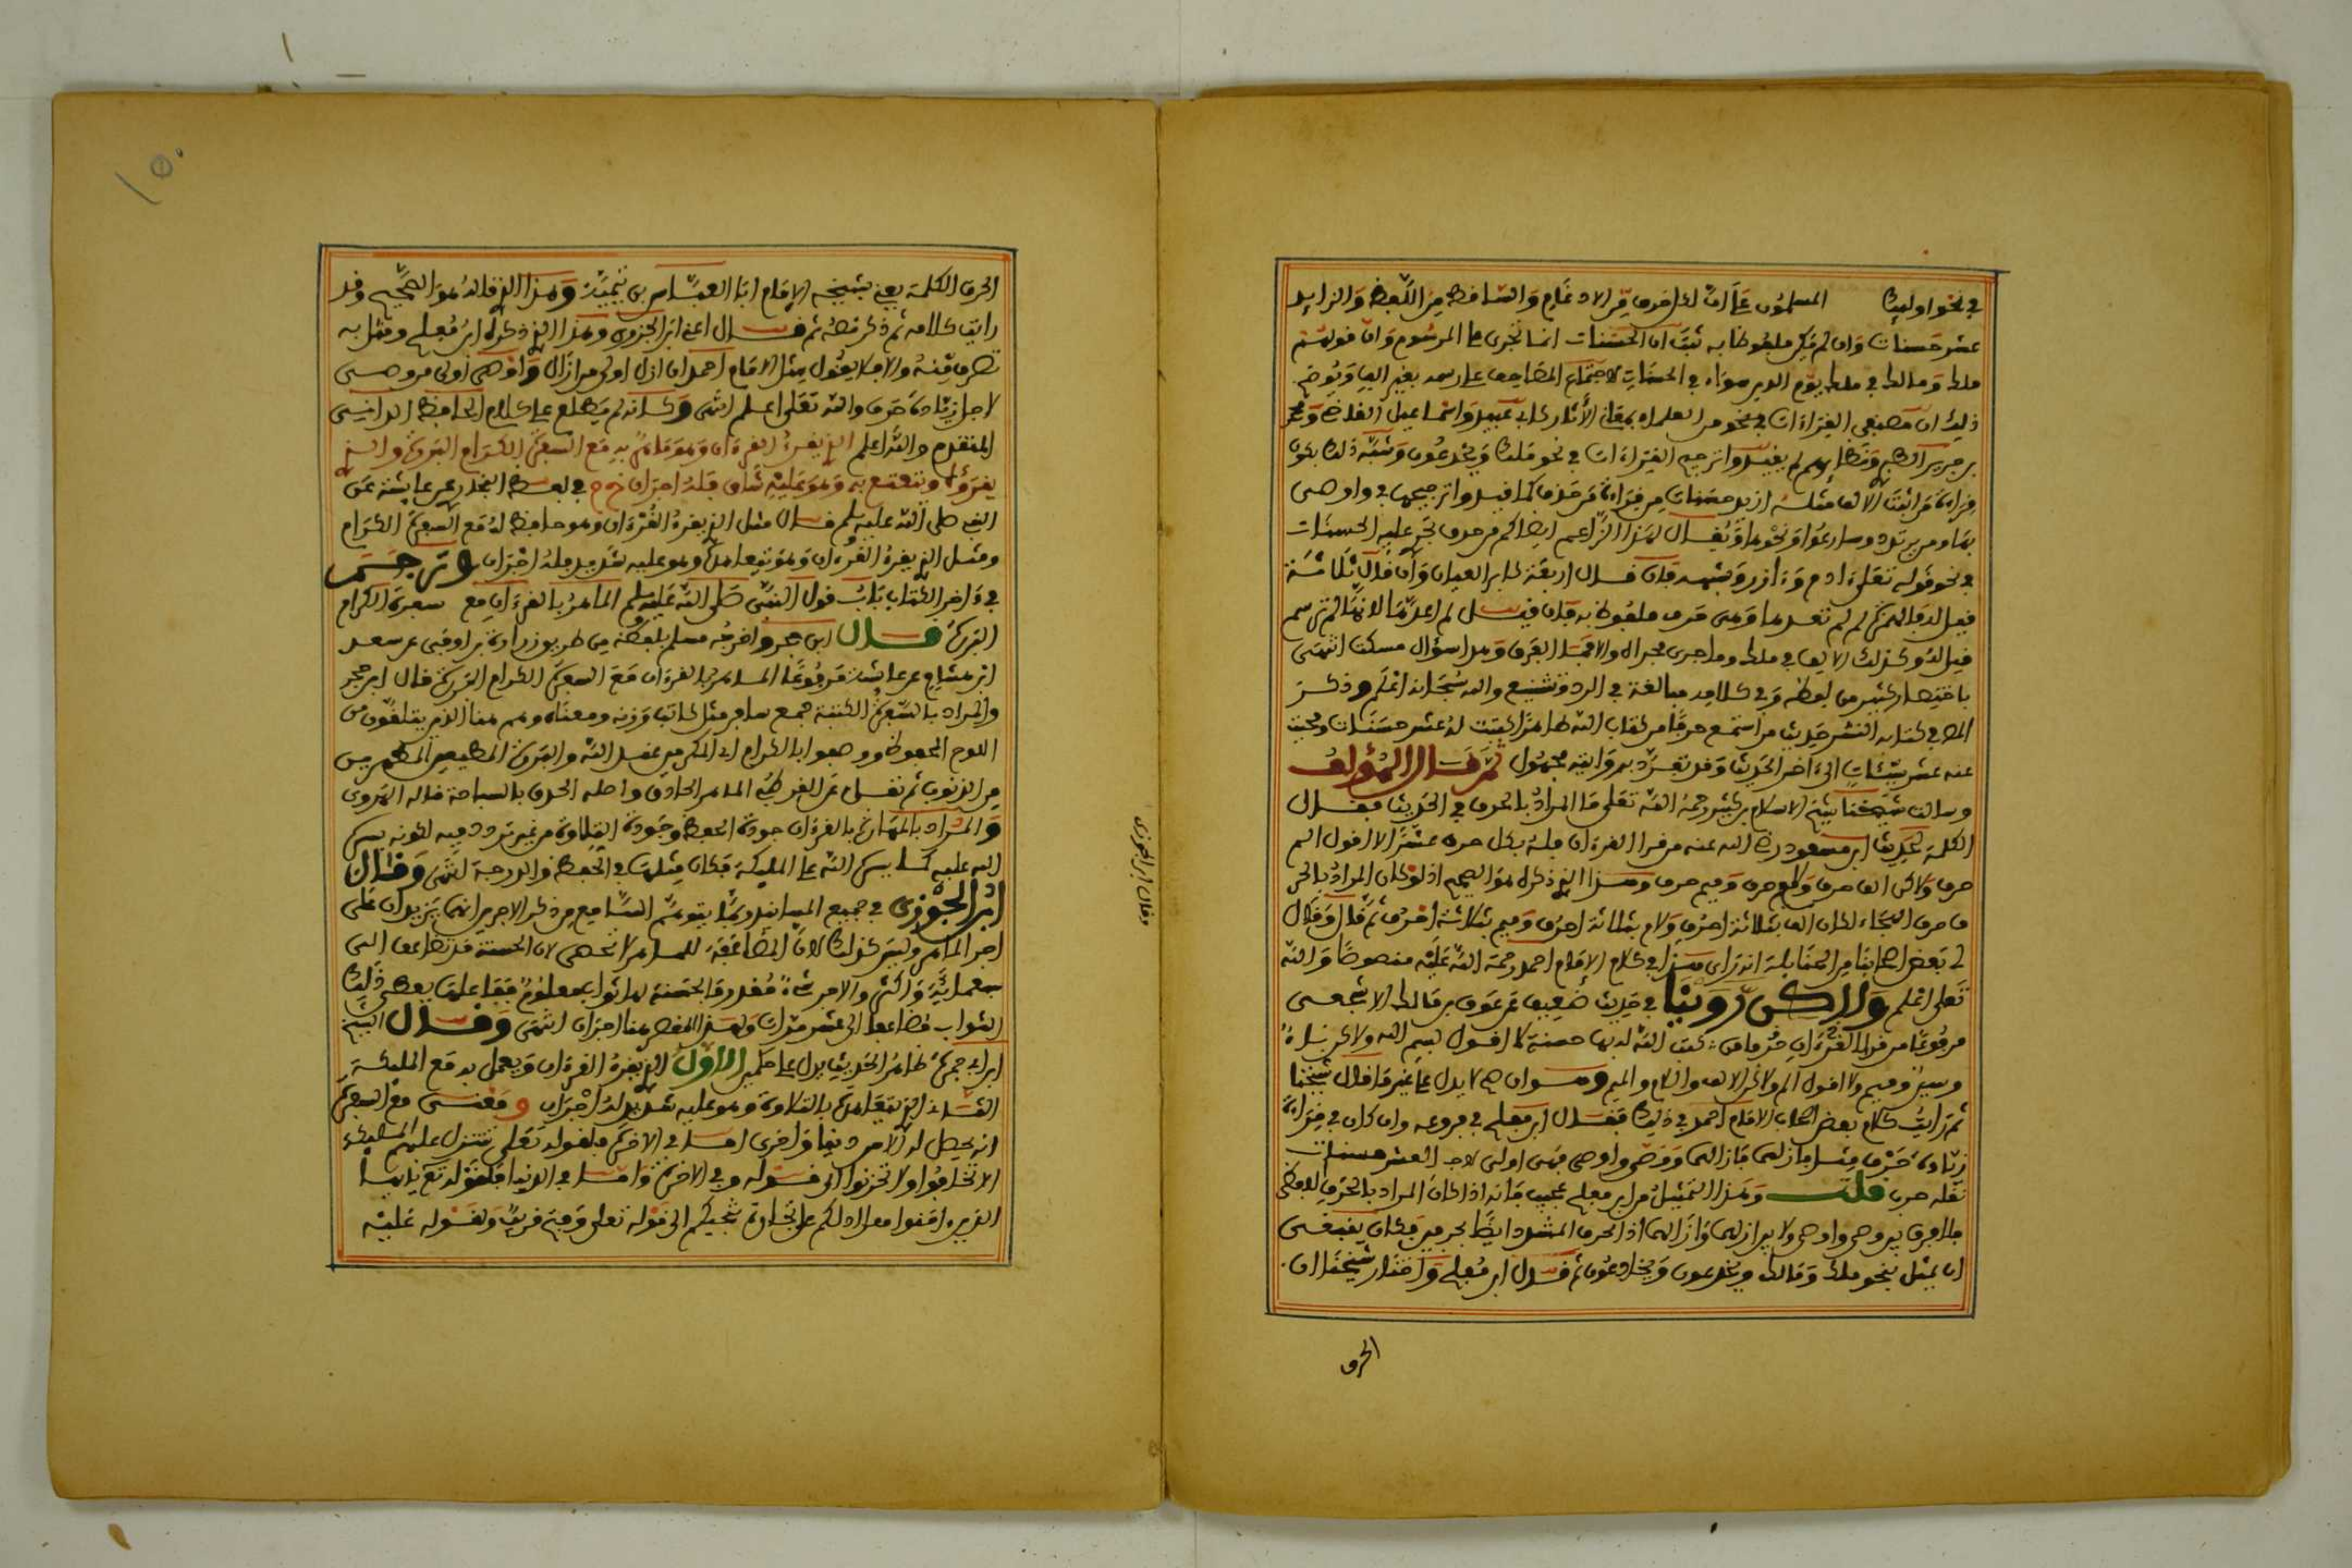 في نحو اوليك المسلمون على ان لكل حرف من الادغام والساقط من اللفظ والزايد
عشر حسنات وان لم يكن ملفوظا به ثبت ان الحسنات انما تجري على المرسوم وان قولهم
ملك ومالك في ملك يوم الدين سواء في الحسنات لاجتماع المصاحف على رسمه بغير الف ويوضح
ذلك ان مصنفي القراءات في نحو من العلماء بمعاني الأثار كابي عبيد واسماعيل القاضي ومحمد
بن جرير الطبري ونظرايهم لم يقيدوا ترجيح القراءات في نحو ملك ويخدعون وشبه ذلك بكون
قراءة من اثبت الالف مثله ازيد حسنات من قراءة من حذف كما قيدوا ترجيحها في واوصى
بها ومن يرتدد وسارعوا ونحوها ويقال لهذا الزاعم ايضا كم من حرف تجري عليه الحسنات
في نحو قوله تعلى ءادم وءازر وشبهه فان قال اربعة كابر العيان وان قال ثلاثة
قيل له فالهمزة لم لم تعدها وهي حرف ملفوظ به فان قيل لم اعدها لانها لم ترسم
قيل له وكذلك الالف في ملك وما جرى مجراه والا فما الفرق وهل سؤال مسكت انتهى
باختصار كثير من لفظه وفي كلامه مبالغة في الرد وتشنيع والله سبحانه اعلم وذكر
ايضا في كتابه النشر حديث من استمع حرفا من كتاب الله طاهرا كتبت له عشر حسنات ومحيت
عنه عشر سيئات الى اخر الحديث وقد تفرد به رواية مجهول ثم قال المؤلف
وسالت شيخنا شيخ الاسلام بن كثير رحمه الله تعلى ما المراد بالحرف في الحديث فقال
الكلمة لحديث ابن مسعود رضي الله عنه من قرا القرءان فله بكل حرف عشر لا اقول الم
حرف ولاكن الف حرف ولام حرف وميم حرف وهذا الذي ذكره هو الصحيح اذ لو كان المراد بالحر
ف حرف الهجاء لكان الف بثلاثة احرف ولام بثلاثة احرف وميم بثلاثة احرف ثم قال وقال
لي بعض اصحابنا من الحنابلة انه راى هذا في كلام الامام احمد رحمة الله عليه منصوصا والله
تعلى اعلم ولاكن روينا في حديث ضعيف عن عوف بن مالك الاشجعي
مرفوعا من قرا القرءان حرفا من كتب الله له بها حسنة لا اقول بسم الله ولاكن باء
وسين وميم ولا اقول الم ولاكن الالف واللام والميم وهو ان صح لا يدل على غير ما قال شيخنا
ثم رايت كلام بعض اصحاب الامام احمد في ذلك فقال ابن مفلح في فروعه وان كان في قراءة
زيادة حرف مثل فازلهما فازالهما ووصى واوصى فهي اولى لاجل العشر حسنات
نقله حرب قلت وهذا التمثيل من ابن مفلح عجيب فانه اذا كان المراد بالحرف اللفظي
فلا فرق بين وصى واوصى ولا بين ازلهما وازالهما اذ الحرف المشدد ايضا بحرفين فكان ينبغي
ان يمثل بنحو ملك ومالك ويخدعون ويخادعون ثم قال ابن مفلح واختار شيخنا ان
الحرف
الحرف الكلمة يعني بشيخه الامام ابا العباس بن تيمية وهذا الذي قاله هو الصحيح وقد
رايت كلامه ثم ذكر نصه ثم قال اعني ابن الجزري وهذا الذي ذكره ابن مفلح ومثل به
تصرف منه والا فلا يقول مثل الامام احمد ان ازل اولى من ازال واوصى اولى من وصى
لاجل زيادة حرف والله تعلى اعلم انتهى وكانه لم يطلع على كلام الحافظ الداني
المتقدم والله اعلم الذي يقرا القرءان وهو ماهر به مع السفرة الكرام البررة والذي
يقرؤه ويتتعتع به وهو عليه شاق فله اجران في لفظ البخاري عن عايشة عن
النبي صلى الله عليه وسلم قال مثل الذي يقرا القرءان وهو حافظ له مع السفرة الكرام
ومثل الذي يقرا القرءان وهو يتعاهده وهو عليه شديد فله اجران وترجم
في ءاخر الكتاب باب قول النبي صلى الله عليه وسلم الماهر بالقرءان مع سفرة الكرام
البررة قال ابن حجر واخرجه مسلم بلفظه من طريق زرارة بن اوفى عن سعد
ابن هشام عن عايشة مرفوعا الماهر بالقرءان مع السفرة الكرام البررة قال ابن حجر
والمراد بالسفرة الكتبة جمع سافر مثل كاتب وزنه ومعناه وهم هنا الذين يتلقون من
اللوح المحفوظ ووصفوا بالكرام اي المكرمين عند الله والبررة المطيعين المطهرين
من الذنوب ثم نقل عن القرطبي الماهر الحاذق واصله الحذق بالسباحة قاله الهروي
والمراد بالمهارة بالقرءان جودة الحفظ وجودة التلاوة من غير تردد فيه لكونه يسره
الله عليه كما يسره الله على المليكة فكان مثلها في الحفظ والدرجة انتهى وقال
ابن الجوزي في جميع المسانيد ربما يتوهم السامع من ذكر الاجرين انهما يزيدان على
اجر الماهر وليس كذلك لان المضاعفة للماهر لا تحصى لان الحسنة قد تضاعف الى
سبعمائة واكثر والاجر شيء مقدر فالحسنة لها ثواب معلوم فبقاعلها يعطى ذلك
الثواب مضاعفا الى عشر مرات ولهذا المقصر هنا اجران انتهى وقال الشيخ
ابن ابي جمرة ظاهر الحديث يدل على حكمين الاول الذي يقرا القرءان ويعمل به مع المليكة
الثاني الذي يتعاهده بالتلاوة وهو عليه شديد له اجران ومعنى مع السفرة
انه يحصل له الامن دنيا واخرى اما في الاخرة فلقوله تعلى تتنزل عليهم المليكة
الا تخافوا ولا تحزنوا الى قوله وفي الاخرة واما في الدنيا فلقوله تع يايها
الذين امنوا هل ادلكم على تجارة تنجيكم الى قوله تعلى وفتح قريب ولقوله عليه
وقال ابن الجوزي
١٥٠